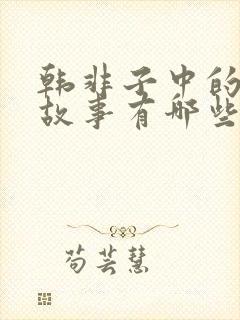 韩非子中的
故事有哪些
苟芸慧